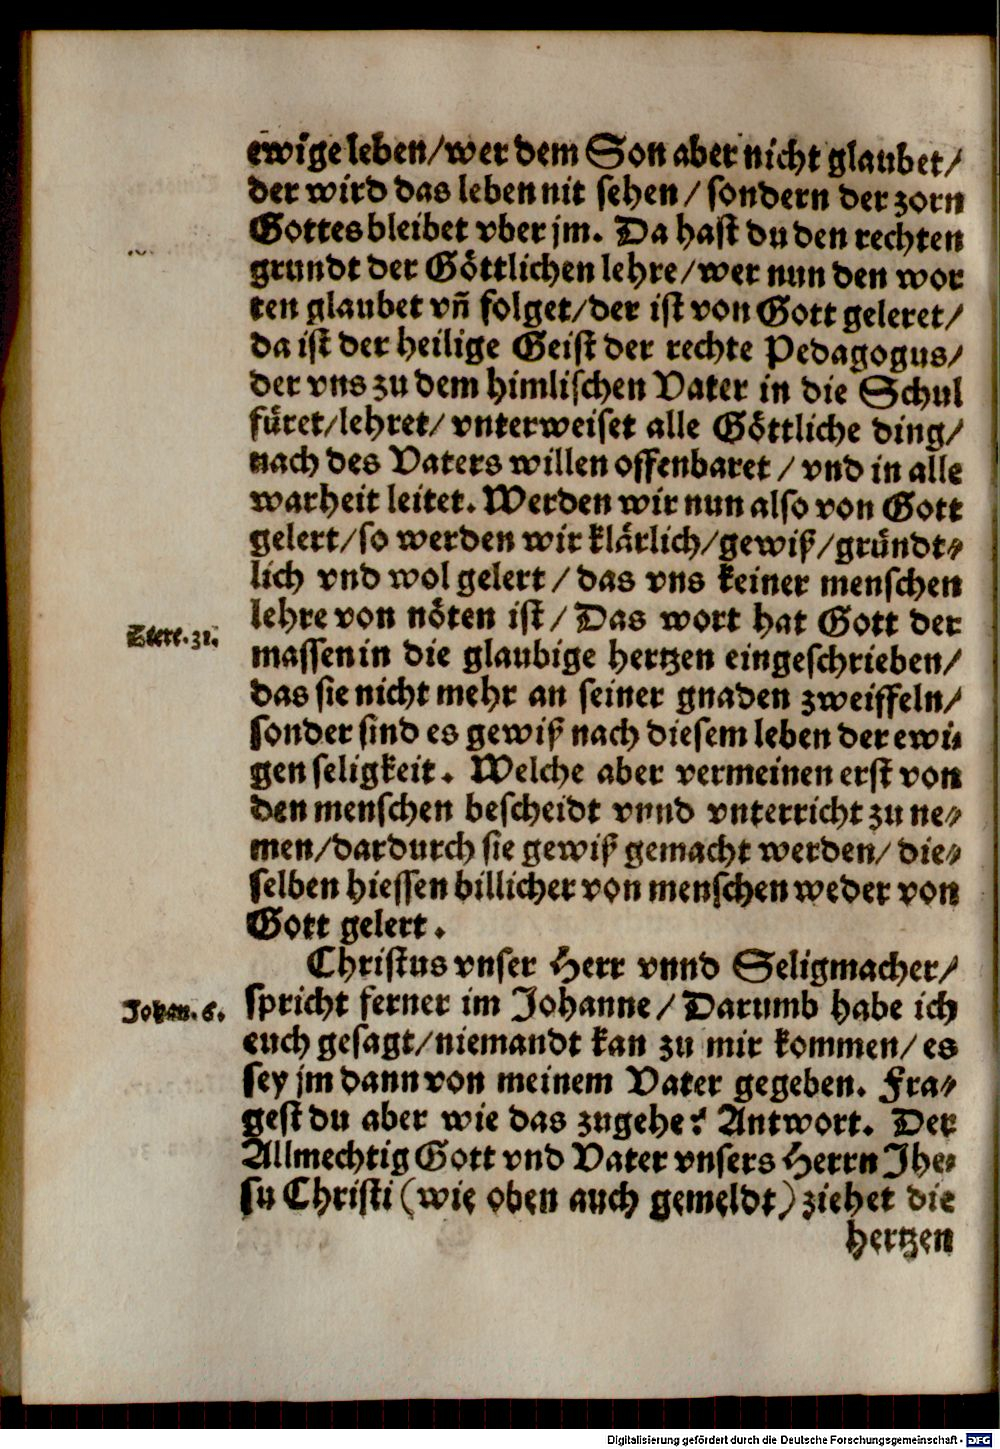 ewige leben/wer dem Son aber nicht glaubet/
der wird das leben nit sehen / sondern der zorn
Gottes bleibet vber jm. Da hast du den rechten
grundt der Göttlichen lehre/wer nun den wor
ten glaubet vñ folget/der ist von Gott geleret/
da ist der heilige Geist der rechte Pedagogus/
der vns zu dem himlischen Vater in die Schul
füret/lehret/ vnterweiset alle Göttliche ding/
nach des Vaters willen offenbaret / vnd in alle
warheit leitet. Werden wir nun also von Gott
gelert/so werden wir klärlich/gewiß/gründt⸗
lich vnd wol gelert / das vns keiner menschen
lehre von nöten ist / Das wort hat Gott der
31.
massen in die glaubige hertzen eingeschrieben/
das sie nicht mehr an seiner gnaden zweiffeln/
sonder sind es gewiß nach diesem leben der ewi⸗
gen seligkeit. Welche aber vermeinen erst von
den menschen bescheidt vnnd vnterricht zu ne⸗
men/dardurch sie gewiß gemacht werden/ die⸗
selben hiessen billicher von menschen weder von
Gott gelert.
Christus vnser Herr vnnd Seligmacher/
Johan. 6.
spricht ferner im Johanne / Darumb habe ich
euch gesagt/niemandt kan zu mir kommen/ es
sey jm dann von meinem Vater gegeben. Fra⸗
gest du aber wie das zugehe? Antwort. Der
Allmechtig Gott vnd Vater vnsers Herrn Jhe⸗
su Christi (wie oben auch gemeldt) ziehet die
hertzen
Digitalisierung gefördert durch die Deutsche Forschungsgemeinschaft - DFG